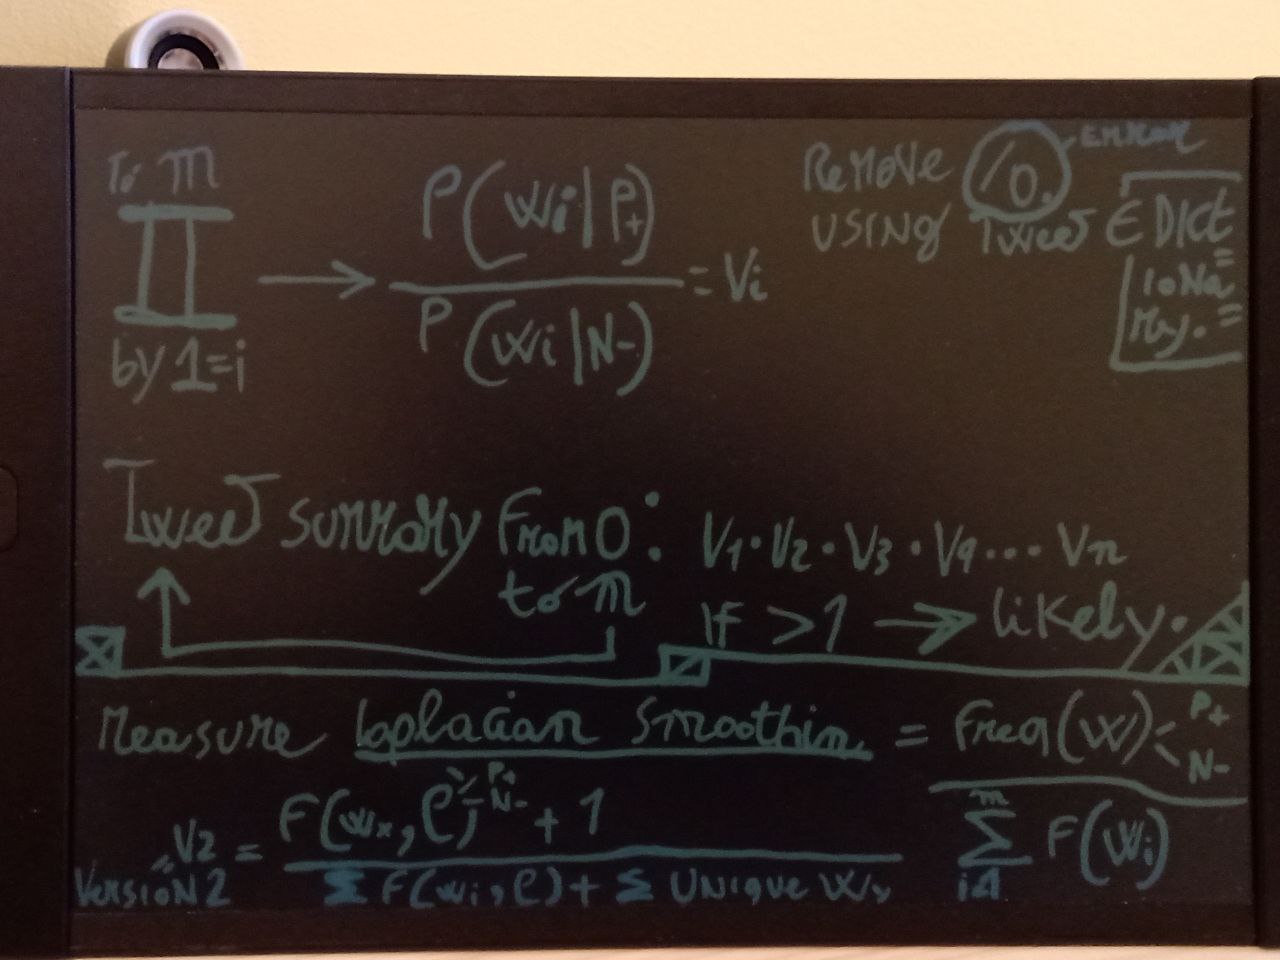 To m
by 1=i
P(Wi|P+)
P(Wi|N-)
= Vi
Remove /0. Error
USING Tweet ∈ DICt
ioNa
Ry.
Tweet summary From 0 : V1 · V2 · V3 · V9 ... Vn
to m
If >1 → likely.
Measure laplacian Smoothin = Freq(W) < P+ N-
m Σ i=1 F(Wi)
Version 2 V2 = F(wx, C) P+ N- + 1
Σ F(wi, C) + Σ UNique Wx